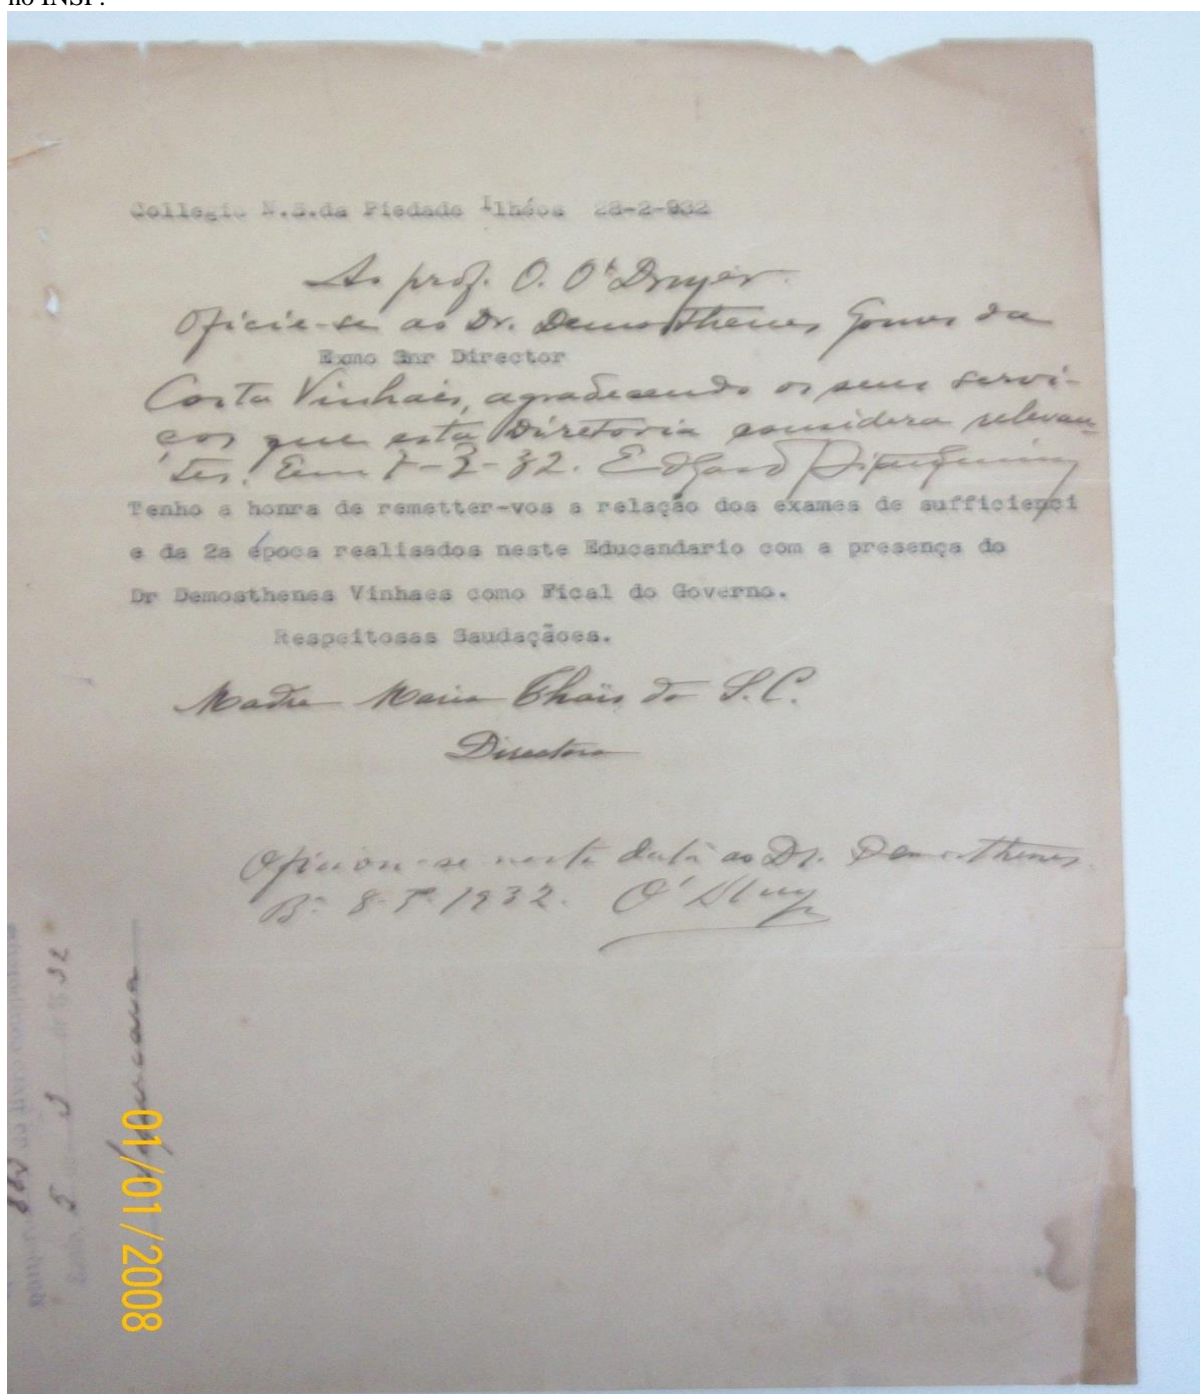 no INSP.
Collegio N.S.da Piedade Ilhéos 28-2-932
Ao prof. O. O'Dwyer.
Oficie-se ao Dr. Demosthenes Gomes da
Exmo Snr Director
Costa Vinhais, agradecendo os seus servi-
ços que esta Diretoria considera relevan-
tes. Em 7-3-32. Edgard
Tenho a honra de remetter-vos a relação dos exames de sufficienci
e da 2a época realisados neste Educandario com a presença do
Dr Demosthenes Vinhaes como Fical do Governo.
Respeitosas Saudaçãoes.
Madre Maria Thaïs do S.C.
Directora
Oficiou-se nesta data ao Dr. Demosthenes.
1932.
32
5
01/01/2008